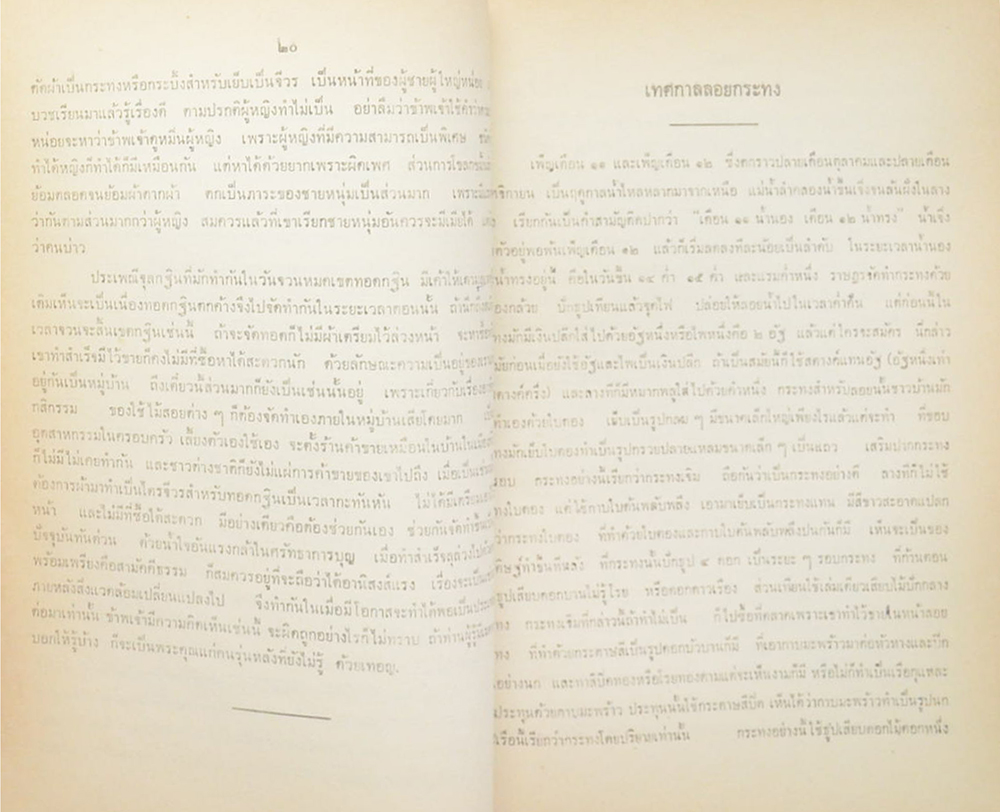 ๒๐
ตัดผ้าเป็นกระทงหรือกระบิ้งสำหรับเย็บเป็นจีวร เป็นหน้าที่ของผู้ชายผู้ใหญ่หน่อย
บวชเรียนมาแล้วรู้เรื่องดี ตามปรกติผู้หญิงทำไม่เป็น อย่าลืมว่าข้าพเจ้าใช้คำว่า
หน่อยจะหาว่าข้าพเจ้าดูหมิ่นผู้หญิง เพราะผู้หญิงที่มีความสามารถเป็นพิเศษ
ทำได้หญิงก็ทำได้ก็มีเหมือนกัน แต่หาได้ด้วยยากเพราะผิดเพศ ส่วนการโขลก
ย้อมตลอดจนย้อมผ้าตากผ้า ตกเป็นภาระของชายหนุ่มเป็นส่วนมาก เพราะมี
ว่ากันตามส่วนมากกว่าผู้หญิง สมควรแล้วที่เขาเรียกชายหนุ่มอันควรจะมีเมียได้
ว่าคนบ่าว
ประเพณีจุลกฐินที่มักทำกันในวันจวนหมดเขตทอดกฐิน มีเค้าให้เห็น
เดิมเห็นจะเป็นเนื่องทอดกฐินตกค้างจึงไปจัดทำกันในระยะเวลาตอนนั้น ถ้า
เวลาจวนจะสิ้นเขตกฐินเช่นนี้ ถ้าจะจัดทอดก็ไม่มีผ้าเตรียมไว้ล่วงหน้า จะ
เขาทำสำเร็จมีไว้ขายก็คงไม่มีที่ซื้อหาได้สะดวกนัก ด้วยลักษณะความเป็นอยู่ของ
อยู่กันเป็นหมู่บ้าน ถึงเดี๋ยวนี้ส่วนมากก็ยังเป็นเช่นนั้นอยู่ เพราะเกี่ยวกับเรื่อง
กสิกรรม ของใช้ไม้สอยต่าง ๆ ก็ต้องจัดทำเองภายในหมู่บ้านเสียโดยมาก
อุตสาหกรรมในครอบครัว เลี้ยงตัวเองใช้เอง จะตั้งร้านค้าขายเหมือนในบ้านในเมือง
ก็ไม่มีไม่เคยทำกัน และชาวต่างชาติก็ยังไม่แผ่การค้าขายของเขาไปถึง เมื่อเป็นเช่นนี้
ต้องการผ้ามาทำเป็นไตรจีวรสำหรับทอดกฐินเป็นเวลากะทันหัน ไม่ได้มีเตรียม
หน้า และไม่มีที่ซื้อได้สะดวก มีอย่างเดียวคือต้องช่วยกันเอง ช่วยกันจัดทำขึ้น
ปัจจุบันทันด่วน ด้วยน้ำใจอันแรงกล้าในศรัทธาการบุญ เมื่อทำสำเร็จลุล่วงไปด้วย
พร้อมเพรียงคือสามัคคีธรรม ก็สมควรอยู่ที่จะถือว่าได้อานิสงส์แรง เรื่องจะเป็น
ภายหลังสิ่งแวดล้อมเปลี่ยนแปลงไป จึงทำกันในเมื่อมีโอกาสจะทำได้พอเป็นประเพณี
ต่อมาเท่านั้น ข้าพเจ้ามีความคิดเห็นเช่นนี้ จะผิดถูกอย่างไรก็ไม่ทราบ ถ้าท่านผู้รู้
บอกให้รู้บ้าง ก็จะเป็นพระคุณแก่คนรุ่นหลังที่ยังไม่รู้ ด้วยเทอญ.
เทศกาลลอยกระทง
เพ็ญเดือน ๑๑ และเพ็ญเดือน ๑๒ ซึ่งตกราวปลายเดือนตุลาคมและปลายเดือน
พฤศจิกายน เป็นฤดูกาลน้ำไหลหลากมาจากเหนือ แม่น้ำลำคลองน้ำขึ้นเจิ่งจนล้นฝั่งในลาง
เรียกกันเป็นคำสามัญติดปากว่า "เดือน ๑๑ น้ำนอง เดือน ๑๒ น้ำทรง" น้ำเจิ่ง
ตัวอยู่พอพ้นเพ็ญเดือน ๑๒ แล้วก็เริ่มลดลงทีละน้อยเป็นลำดับ ในระยะเวลาน้ำนอง
น้ำทรงอยู่นี้ คือในวันขึ้น ๑๔ ค่ำ ๑๕ ค่ำ และแรมค่ำหนึ่ง ราษฎรจัดทำกระทงด้วย
ตองกล้วย ปักธูปเทียนแล้วจุดไฟ ปล่อยให้ลอยน้ำไปในเวลาค่ำคืน แต่ก่อนนี้ใน
ทงมักมีเงินปลีกใส่ไปด้วยอัฐหนึ่งหรือไพหนึ่งคือ ๒ อัฐ แล้วแต่ใครจะสมัคร นี่กล่าว
มัยก่อนเมื่อยังใช้อัฐและไพเป็นเงินปลีก ถ้าเป็นสมัยนี้ก็ใช้สตางค์แทนอัฐ (อัฐหนึ่งเท่า
ตางค์ครึ่ง) และลางทีก็มีหมากพลูใส่ไปด้วยคำหนึ่ง กระทงสำหรับลอยนั้นชาวบ้านมัก
ทำเองด้วยใบตอง เย็บเป็นรูปกลม ๆ มีขนาดเล็กใหญ่เพียงไรแล้วแต่จะทำ ที่ขอบ
ทงมักเย็บใบตองทำเป็นรูปกรวยปลายแหลมขนาดเล็ก ๆ เป็นแถว เสริมปากกระทง
รอบ กระทงอย่างนี้เรียกว่ากระทงเจิม ถือกันว่าเป็นกระทงอย่างดี ลางทีก็ไม่ใช้
ทงใบตอง แต่ใช้กาบใบต้นพลับพลึง เอามาเย็บเป็นกระทงแทน มีสีขาวสะอาดแปลก
ว่ากระทงใบตอง ที่ทำด้วยใบตองและกาบใบต้นพลับพลึงปนกันก็มี เห็นจะเป็นของ
ดิษฐ์ทำขึ้นทีหลัง ที่กระทงนั้นปักธูป ๔ ดอก เป็นระยะ ๆ รอบกระทง ที่ก้านดอก
ธูปเสียบดอกบานไม่รู้โรย หรือดอกดาวเรือง ส่วนเทียนใช้เล่มเดียวเสียบไม้ปักกลาง
ทง กระทงเจิมที่กล่าวนี้ถ้าทำไม่เป็น ก็ไปซื้อที่ตลาดเพราะเขาทำไว้ขายในหน้าลอย
ทง ที่ทำด้วยกระดาษสีเป็นรูปดอกบัวบานก็มี ที่เอากาบมะพร้าวมาต่อหัวหางและปีก
อย่างนก และทาสีปิดทองหรือโรยทองตามแต่จะเห็นงามก็มี หรือไม่ก็ทำเป็นเรือกุแหละ
ประทุนด้วยกาบมะพร้าว ประทุนนั้นใช้กระดาษสีปิด เห็นได้ว่ากาบมะพร้าวทำเป็นรูปนก
เรือนี้เรียกว่ากระทงโดยปริยายเท่านั้น กระทงอย่างนี้ใช้ธูปเสียบดอกไม้ดอกหนึ่ง